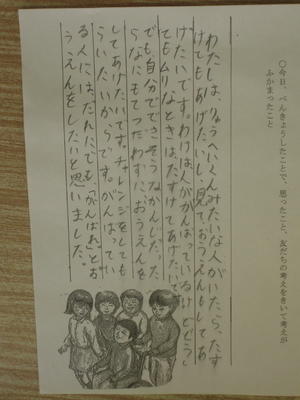 ○今日、べんきょうしたことで、思ったこと、友だちの考えをきいて考えが
ふかまったこと
わたしは、りゅうへいくんみたいな人がいたら、たす
けてもあげたいし、見えて、おうえんもしてあ
げたいです。わけは、人ががんばっているけどどうし
てもムリなときは、たすけてあげたいです。
でも、自分でできそうなかんじだった
らなにもてつだわずに、おうえんを
してあげたいです。チャレンジをしても
らいたいからです。がんばってい
る人には、だれにでも、「がんばれ」とお
うえんをしたいと思いました。